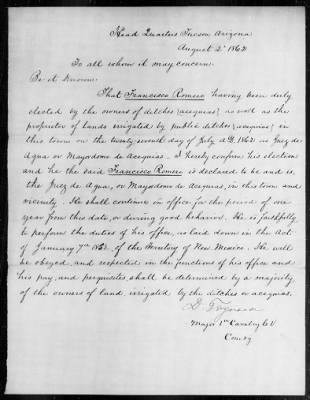 Head Quarters Tucson Arizona
August 2d 1862
To all whom it may concern.
Be it Known.
That Francisco Romero having been duly
elected by the owners of ditches (acequias) as well as the
proprietor of lands irrigated by public ditches (acequias) in
this town on the twenty seventh day of July A.D. 1862 as Juez de
Agua or Mayodomo de Acequias. I hereby confirm his election
and he the said Francisco Romero is declared to be and is,
the Juez de Agua, or Mayodomo de Acequias, in this town and
vicinity. He shall continue in office for the period of one
year from this date, or during good behavior. He is faithfully
to perform the duties of his office, as laid down in the Act
of January 7th 1852. of the Territory of New Mexico. He will
be obeyed, and respected in the functions of his office and
his pay, and perquisites, shall be determined by a majority
of the owners of land, irrigated by the ditches or acequias.
D. Fergusson
Major 1st Cavalry C.V.
Comdg